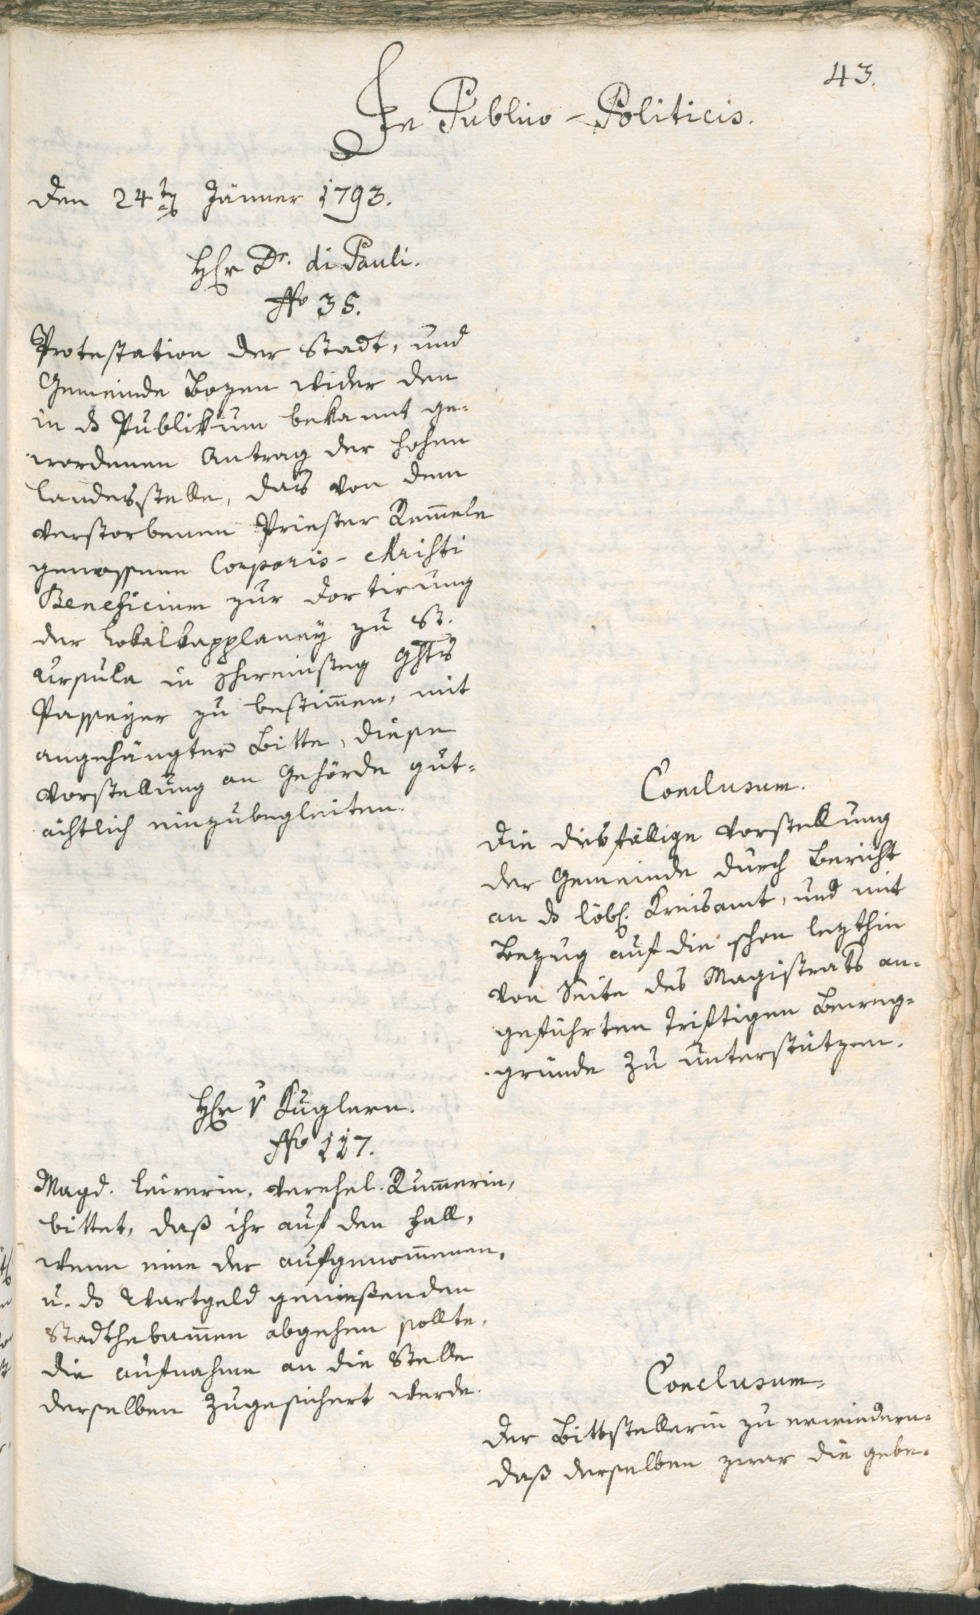 43.
In Publico-Politicis.
Den 24ten Jänner 1793.
Hr Dr. di Pauli.
No 35.
Protestation der Stadt, und
Gemeinde Bozen wider den
in ds Publikum bekannt ge-
wordenen Antrag der hohen
Landesstelle, das von dem
verstorbenen Priester Remele
genossene Corporis-Christi
Beneficium zur Dortirung
der Lokalkapplaney zu St.
Ursula in Ghts
Passeyer zu bestimen, mit
angehängter Bitte, diese
Vorstellung an Gehörde gut-
ächtlich einzubegleiten.
Conclusum.
Die diesfällige Vorstellung
der Gemeinde durch Bericht
an ds löbl. Kreisamt, und mit
Bezug auf die schon lezthin
von Seite des Magistrats an-
geführten triftigen Beweg-
gründe zu unterstützen.
Hr v Kuglern.
No 117.
Magd. verehel. Rumerin,
bittet, daß ihr auf den Fall,
wenn eine der aufgenomenen,
u. ds Wartgeld geniessenden
Stadthebamen abgehen sollte,
die Aufnahme an die Stelle
derselben zugesichert werde.
Conclusum.
Der Bittstellerin zu erwiedern,
daß derselben zwar die gebe-